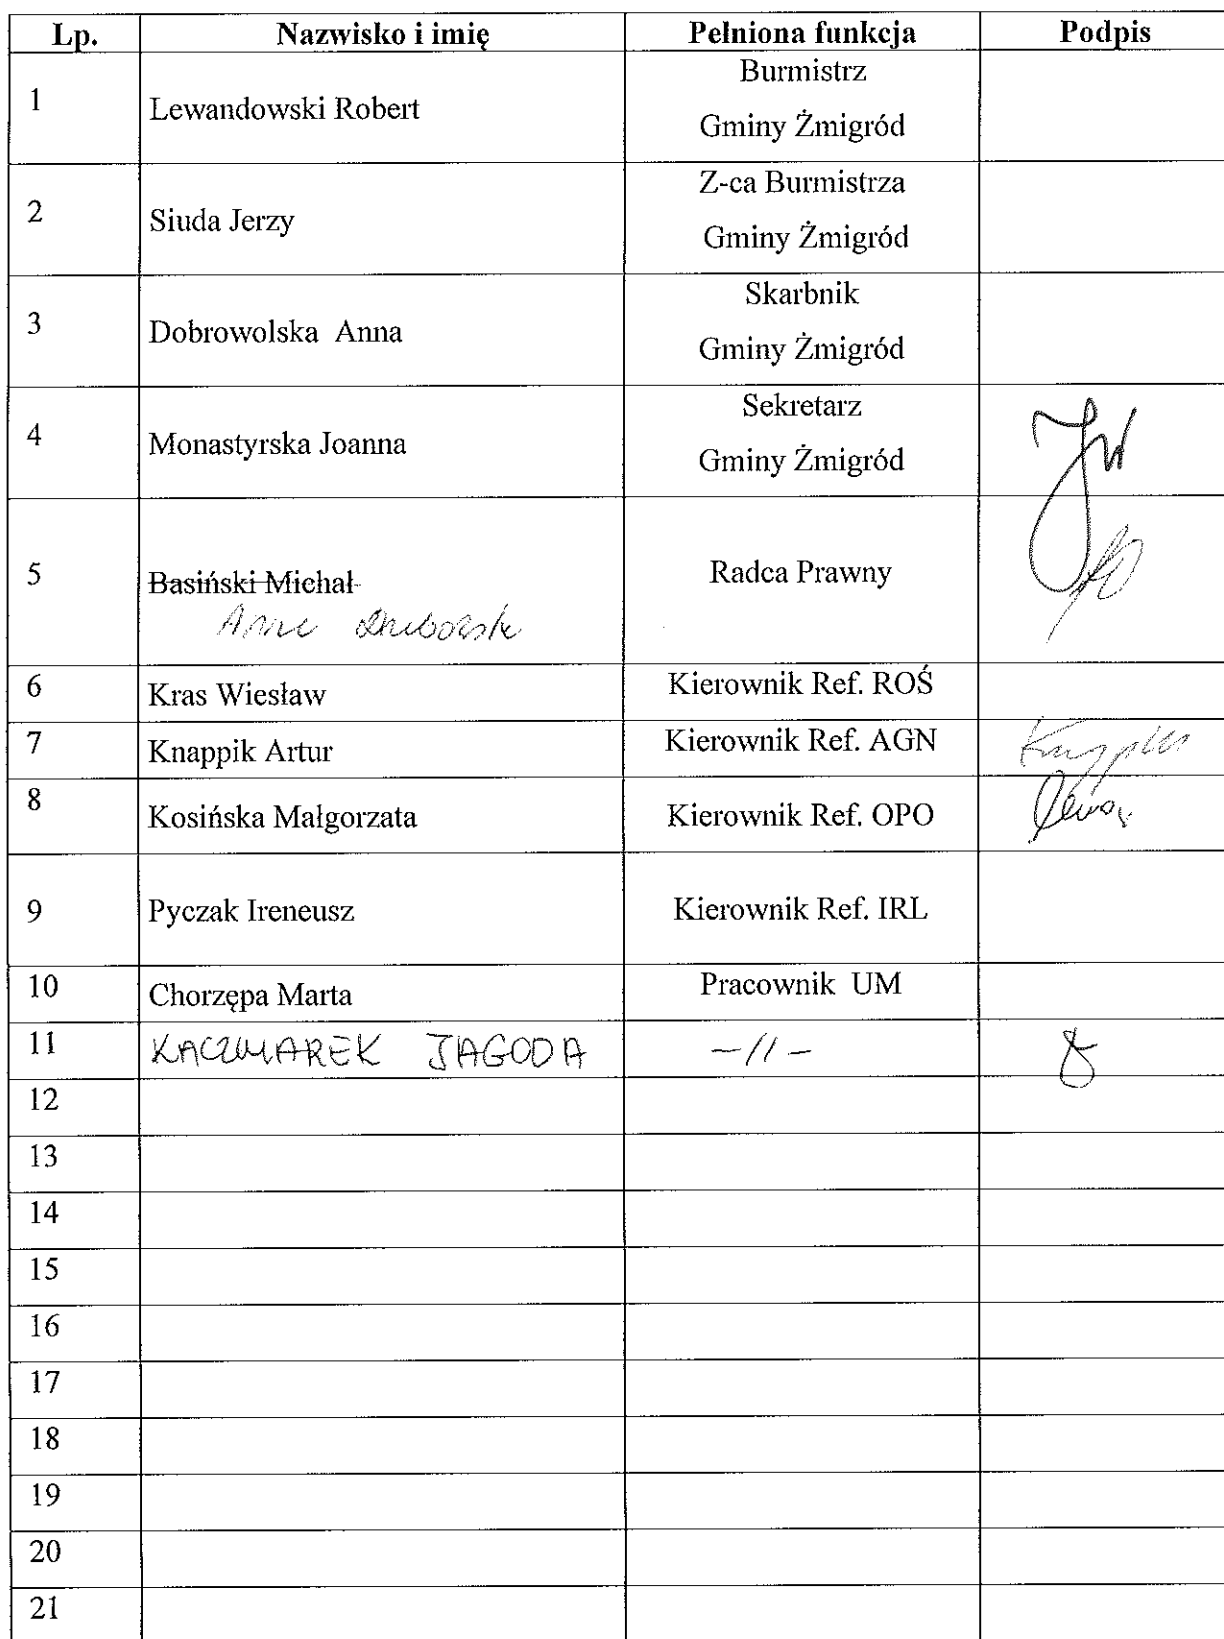 Lp. Nazwisko i imię Pełniona funkcja Podpis
1 Lewandowski Robert Burmistrz
Gminy Żmigród
2 Siuda Jerzy Z-ca Burmistrza
Gminy Żmigród
3 Dobrowolska Anna Skarbnik
Gminy Żmigród
4 Monastyrska Joanna Sekretarz
Gminy Żmigród
5 Basiński Michał Radca Prawny
6 Kras Wiesław Kierownik Ref. ROŚ
7 Knappik Artur Kierownik Ref. AGN
8 Kosińska Małgorzata Kierownik Ref. OPO
9 Pyczak Ireneusz Kierownik Ref. IRL
10 Chorzępa Marta Pracownik UM
11 KACZMAREK JAGODA -//-
12
13
14
15
16
17
18
19
20
21